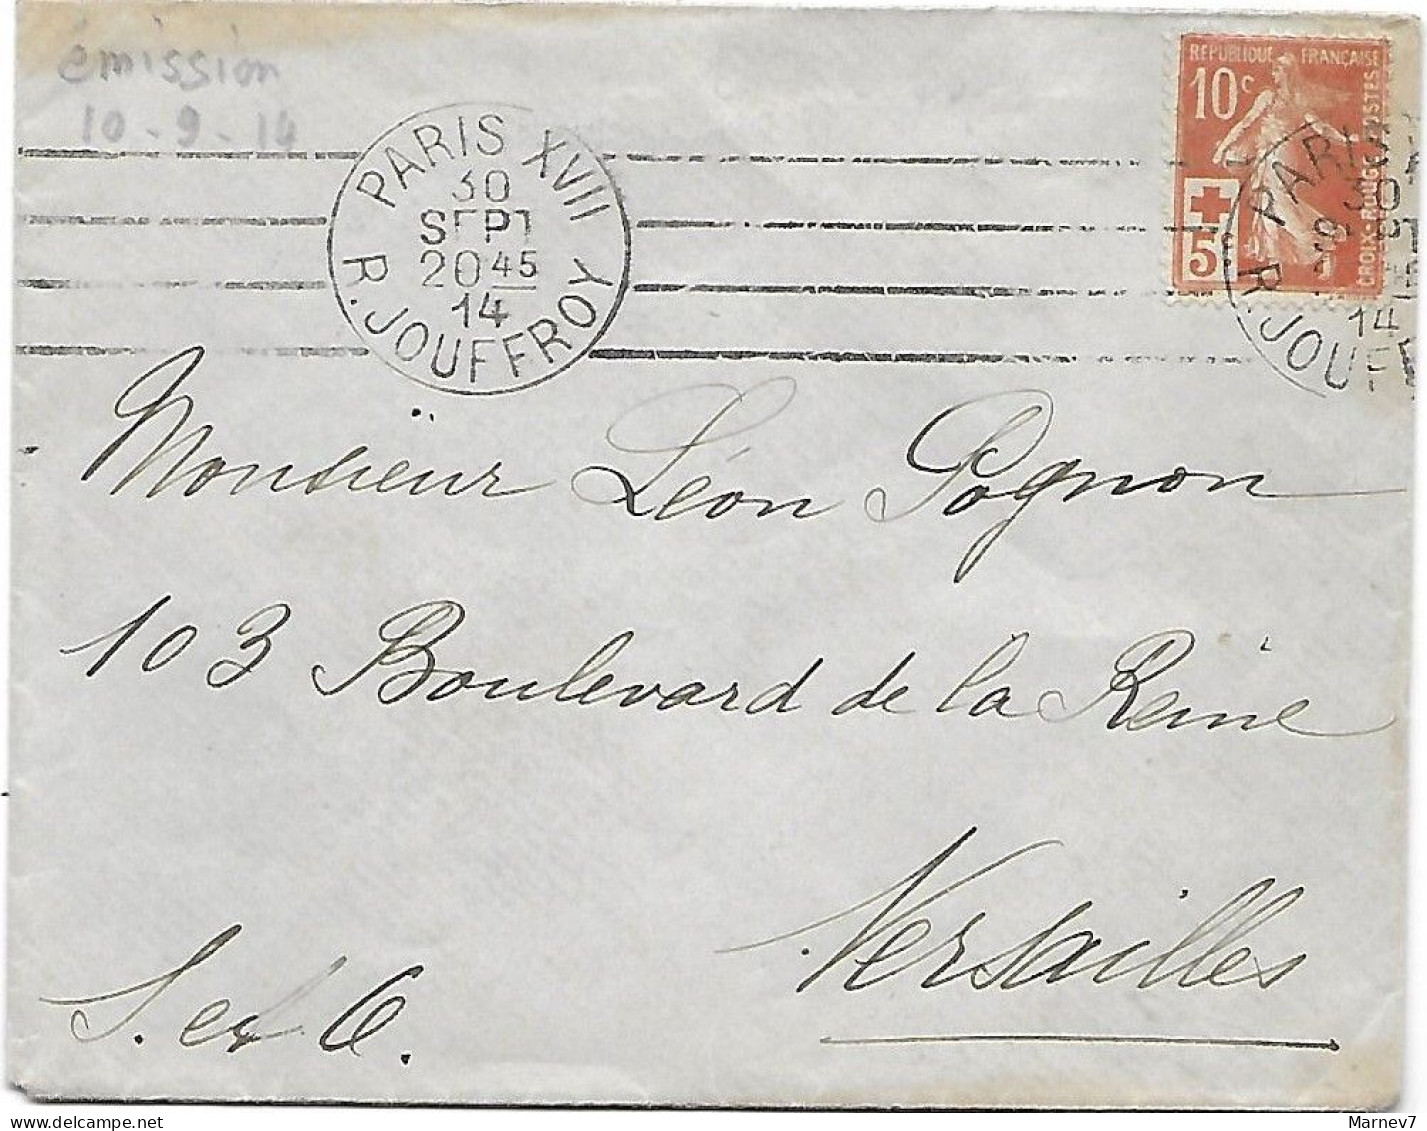 émission
10-9-14
PARIS XVII
30
SEPT
20 45
14
R. JOUFFROY
REPUBLIQUE FRANÇAISE
10c
POSTES
CROIX-ROUGE
5
PARIS
30
14
R. JOUFF
Monsieur Léon Pognon
103 Boulevard de la Reine
Versailles
S. et O.
delcampe.net
Marnev7